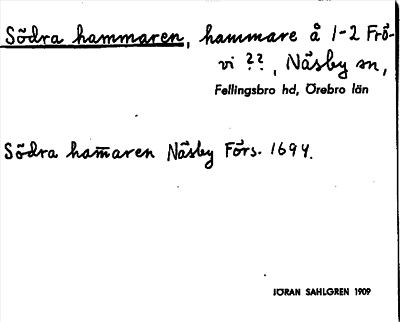 Södra hammaren, hammare å 1-2 Frö-
vi ??, Näsby sn,
Fellingsbro hd, Örebro län
Södra ham̅aren Näsby Förs. 1694.
JÖRAN SAHLGREN 1909